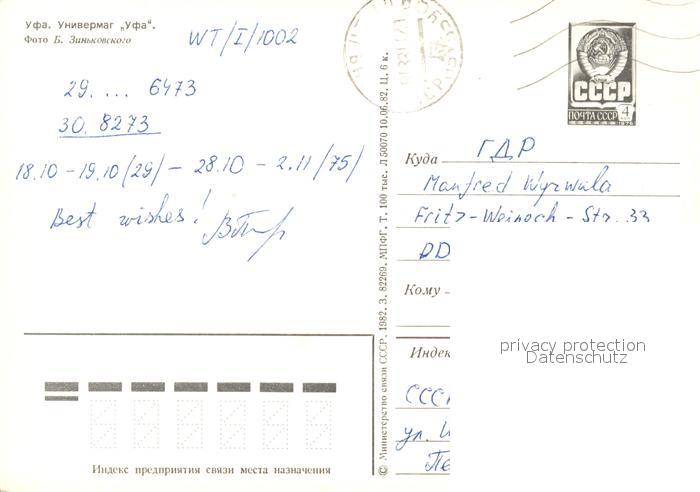 Уфа. Универмаг „Уфа“.
Фото Б. Зиньковского
WT/I/1002
29. ... 6473
30. 8273
18.10 - 19.10 (29) - 28.10 - 2.11 (75)
Best wishes!
© Министерство связи СССР. 1982. З. 82269. МПФГ. Т. 100 тыс. Л 50070 10.06.82. Ц. 6 к.
СССР
ПОЧТА СССР 4
Куда ГДР
Manfred Wyrwala
Fritz-Weinoch-Str. 33
DD
Кому
privacy protection
Datenschutz
Индек
ССС
ул.
Пе
Индекс предприятия связи места назначения